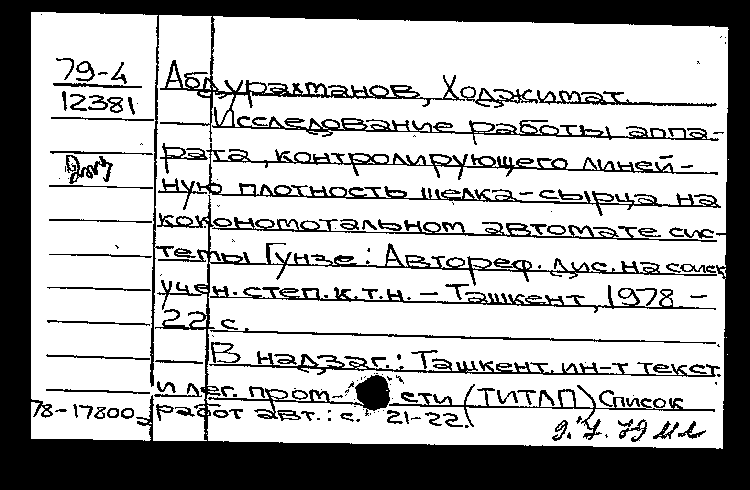 79-4
12381
Абдурахманов, Ходжимат.
Исследование работы аппа-
рата, контролирующего линей-
ную плотность шелка-сырца на
кокономотальном автомате сис-
темы Гунзе: Автореф. дис. на соиск
учен. степ. к.т.н. – Ташкент, 1978. –
22 с.
В надзаг.: Ташкент. ин-т текст.
и лег. пром-сти (ТИТЛП) Список
78-17800 работ авт.: с. 21-22.